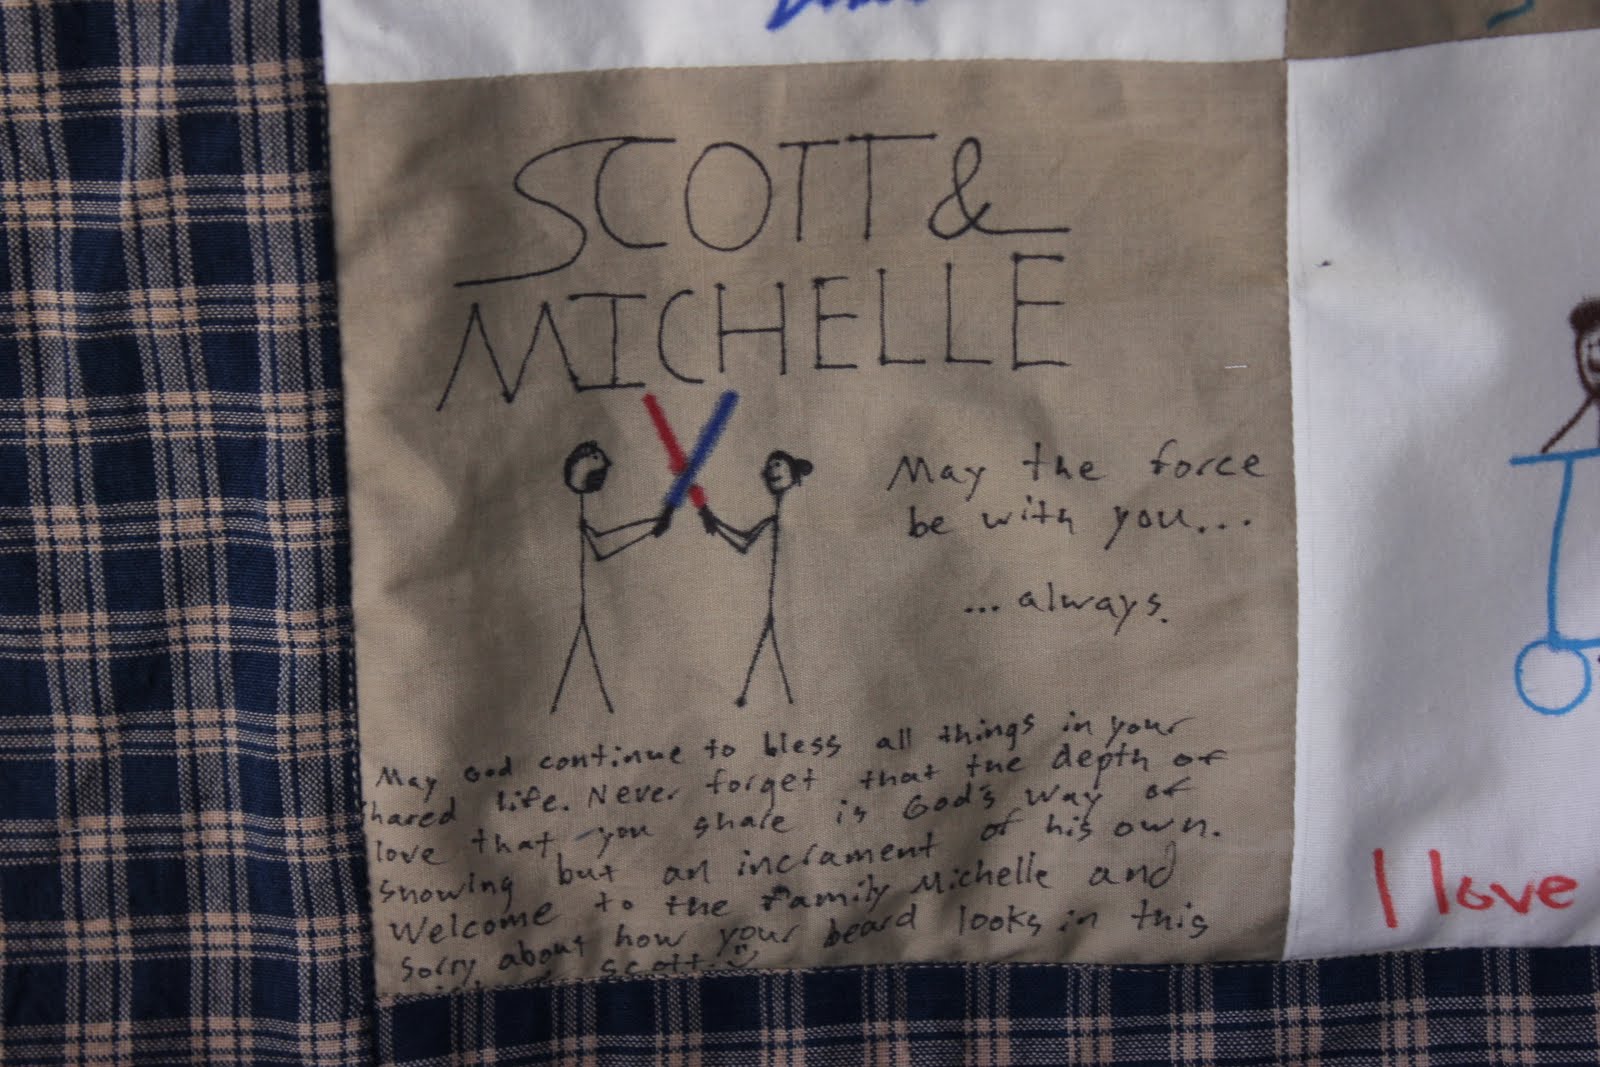 SCOTT &
MICHELLE
May the force
be with you...
...always.
May God continue to bless all things in your
shared life. Never forget that the depth of
love that you share is God's way of
snowing but an incrament of his own.
Welcome to the family Michelle and
sorry about how your beard looks in this
scott.
I love